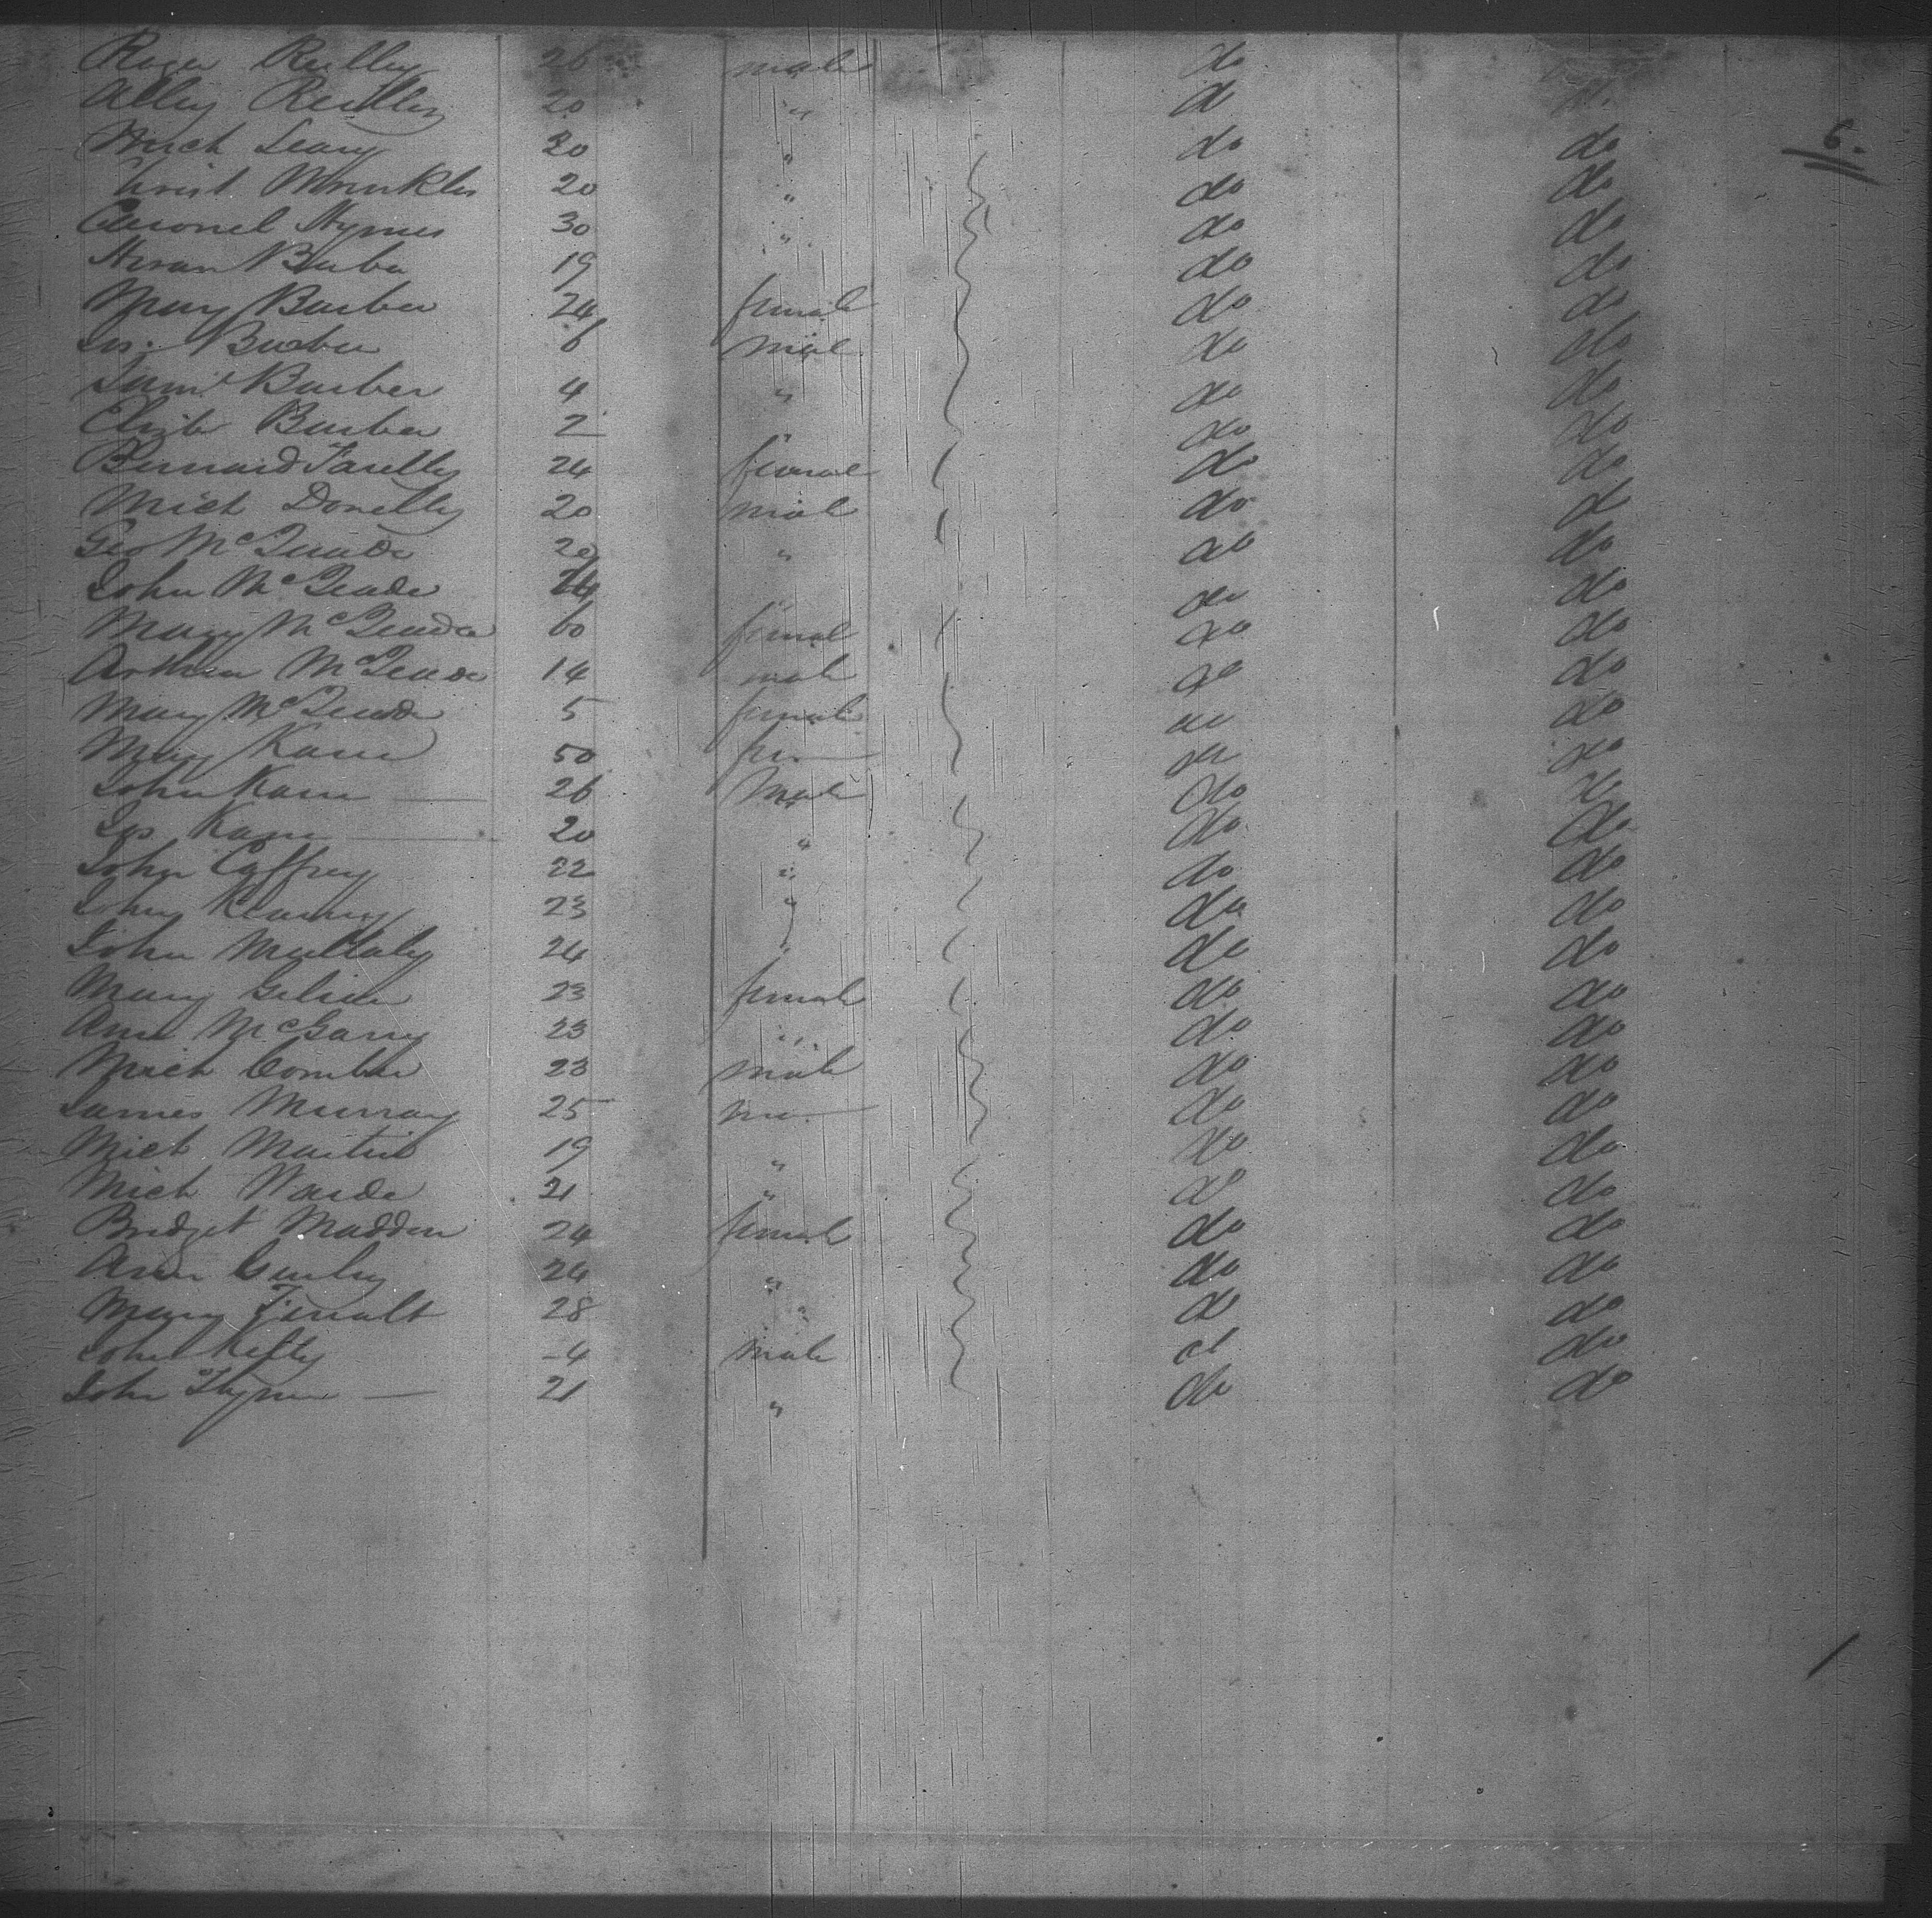 Roger Reilly 26 male do
Alley Reilly 20 " d
Mich Leary 20 " do do 6.
Christ Wrinkles 20 " do do
Hymes 30 " do do
Hiram Barber 19 do do
Mary Barber 24 female do do
Jas. Barber 6 male do do
Saml Barber 4 " do do
Elizth Barber 2 " do do
Bernard Farelly 24 female do do
Mich Donelly 20 male do d
Geo McQuade 20 " do do
John McQuade 24 " do do
Mary McQuade 60 female do do
Arthur McQuade 14 male do do
Mary McQuade 5 female do do
Mary Kane 50 fem do do
John Kane 26 Male do do
Jas Kane 20 " do do
John Caffrey 22 " do do
John Kearney 23 " do do
John Mullaly 24 " do do
Mary 23 female do do
Ann McGarry 23 " do do
Mich 23 male do do
James Murray 25 ma do do
Mich Martin 19 " do do
Mich Warde 21 " do do
Bridget Madden 24 female do do
Ann 24 " do do
Mary 28 " d do
John Kelly 4 male d do
John 21 " do do